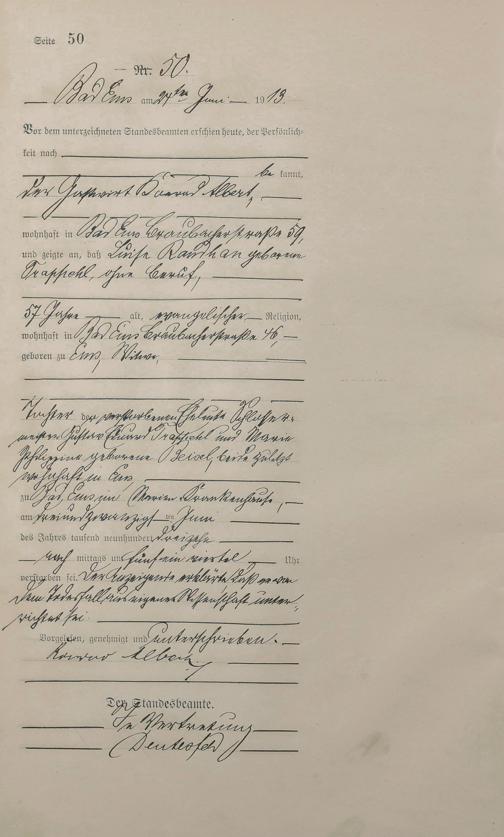 Seite 50
Nr. 50.
Bad Ems am 24ten Juni 1913.
Vor dem unterzeichneten Standesbeamten erschien heute, der Persönlich-
keit nach
be kannt,
der Gastwirt Konrad Albert,
wohnhaft in Bad Ems Braubacherstraße 59,
und zeigte an, daß Luise geborene
ohne Beruf,
57 Jahre alt, evangelischer Religion,
wohnhaft in Bad Ems Braubacherstraße 46,
geboren zu Ems, Witwe,
Tochter der verstorbenen Eheleute Schlosser-
meister Gustav Eduard und Maria
Philippine geborene beide zuletzt
wohnhaft in Ems
zu Bad Ems, im Marien Krankenhause,
am dreiundzwanzigst en Juni
des Jahres tausend neunhundert dreizehn
nach mittags um fünf ein viertel Uhr
verstorben sei. Der Anzeigende erklärte, daß er von
dem Todesfall aus eigener Wissenschaft unter-
richtet sei.
Vorgelesen, genehmigt und unterschrieben.
Konrad Albert
Der Standesbeamte.
In Vertretung